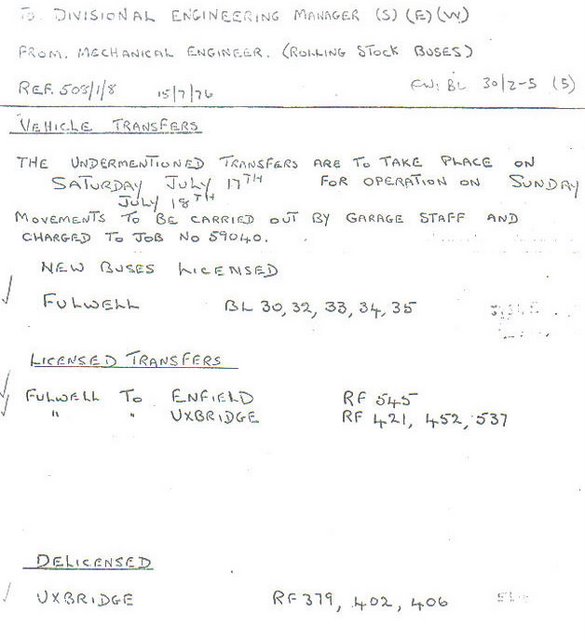 TO. DIVISIONAL ENGINEERING MANAGER (S) (E) (W)
FROM. MECHANICAL ENGINEER. (ROLLING STOCK BUSES)
REF. 503/1/8 15/7/76 FW: BL 30/2-5 (5)
VEHICLE TRANSFERS
THE UNDERMENTIONED TRANSFERS ARE TO TAKE PLACE ON
SATURDAY JULY 17TH FOR OPERATION ON SUNDAY
JULY 18TH
MOVEMENTS TO BE CARRIED OUT BY GARAGE STAFF AND
CHARGED TO JOB NO 59040.
NEW BUSES LICENSED
FULWELL BL 30, 32, 33, 34, 35
LICENSED TRANSFERS
FULWELL TO ENFIELD RF 545
" " UXBRIDGE RF 421, 452, 537
DELICENSED
UXBRIDGE RF 379, 402, 406